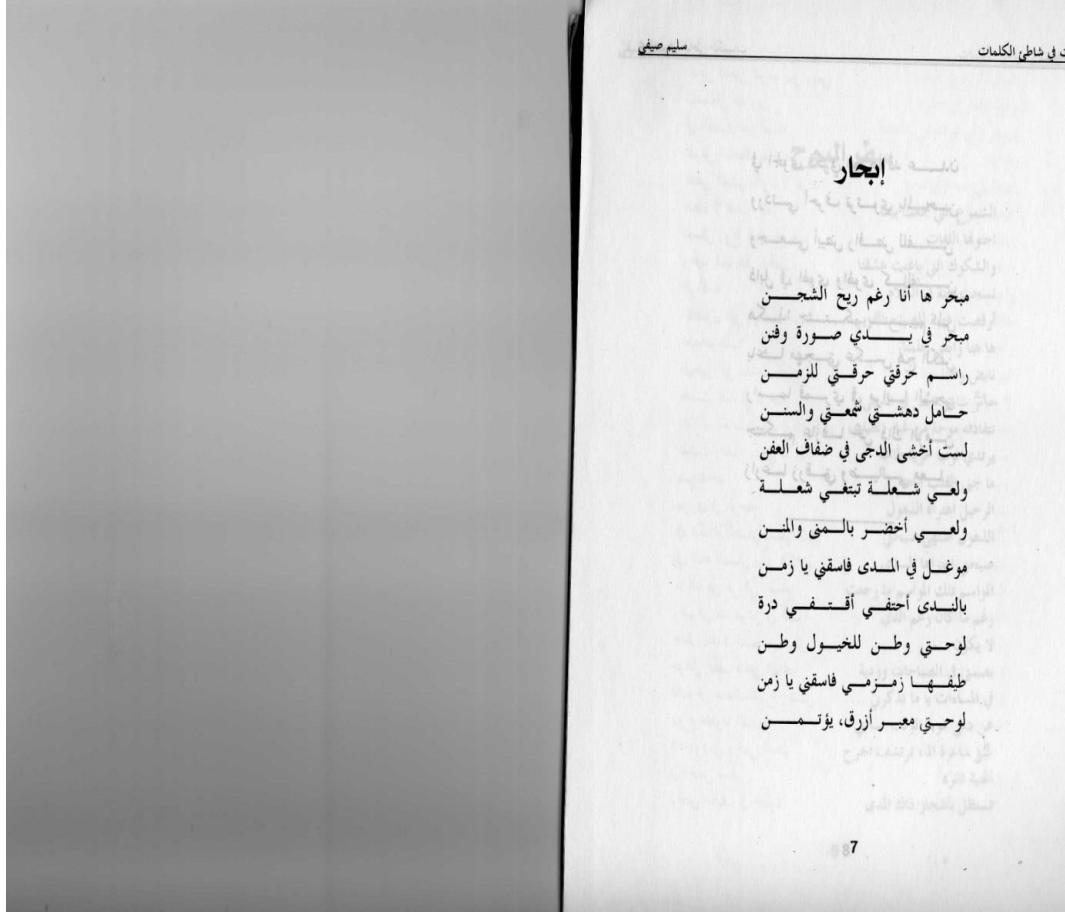 ت في شاطئ الكلمات سليم صيفي
إبحار
مبحر ها أنا رغم ريح الشجن
مبحر في يدي صورة وفنن
راسم حرقتي حرقتي للزمن
حامل دهشتي شمعتي والسنن
لست أخشى الدجى في ضفاف العفن
ولعي شعلة تبتغي شعلة
ولعي أخضر بالمنى والمنن
موغل في المدى فاسقني يا زمن
بالندى أحتفي أقتفي درة
لوحتي وطن للخيول وطن
طيفها زمزمي فاسقني يا زمن
لوحتي معبر أزرق، يؤتمن
7